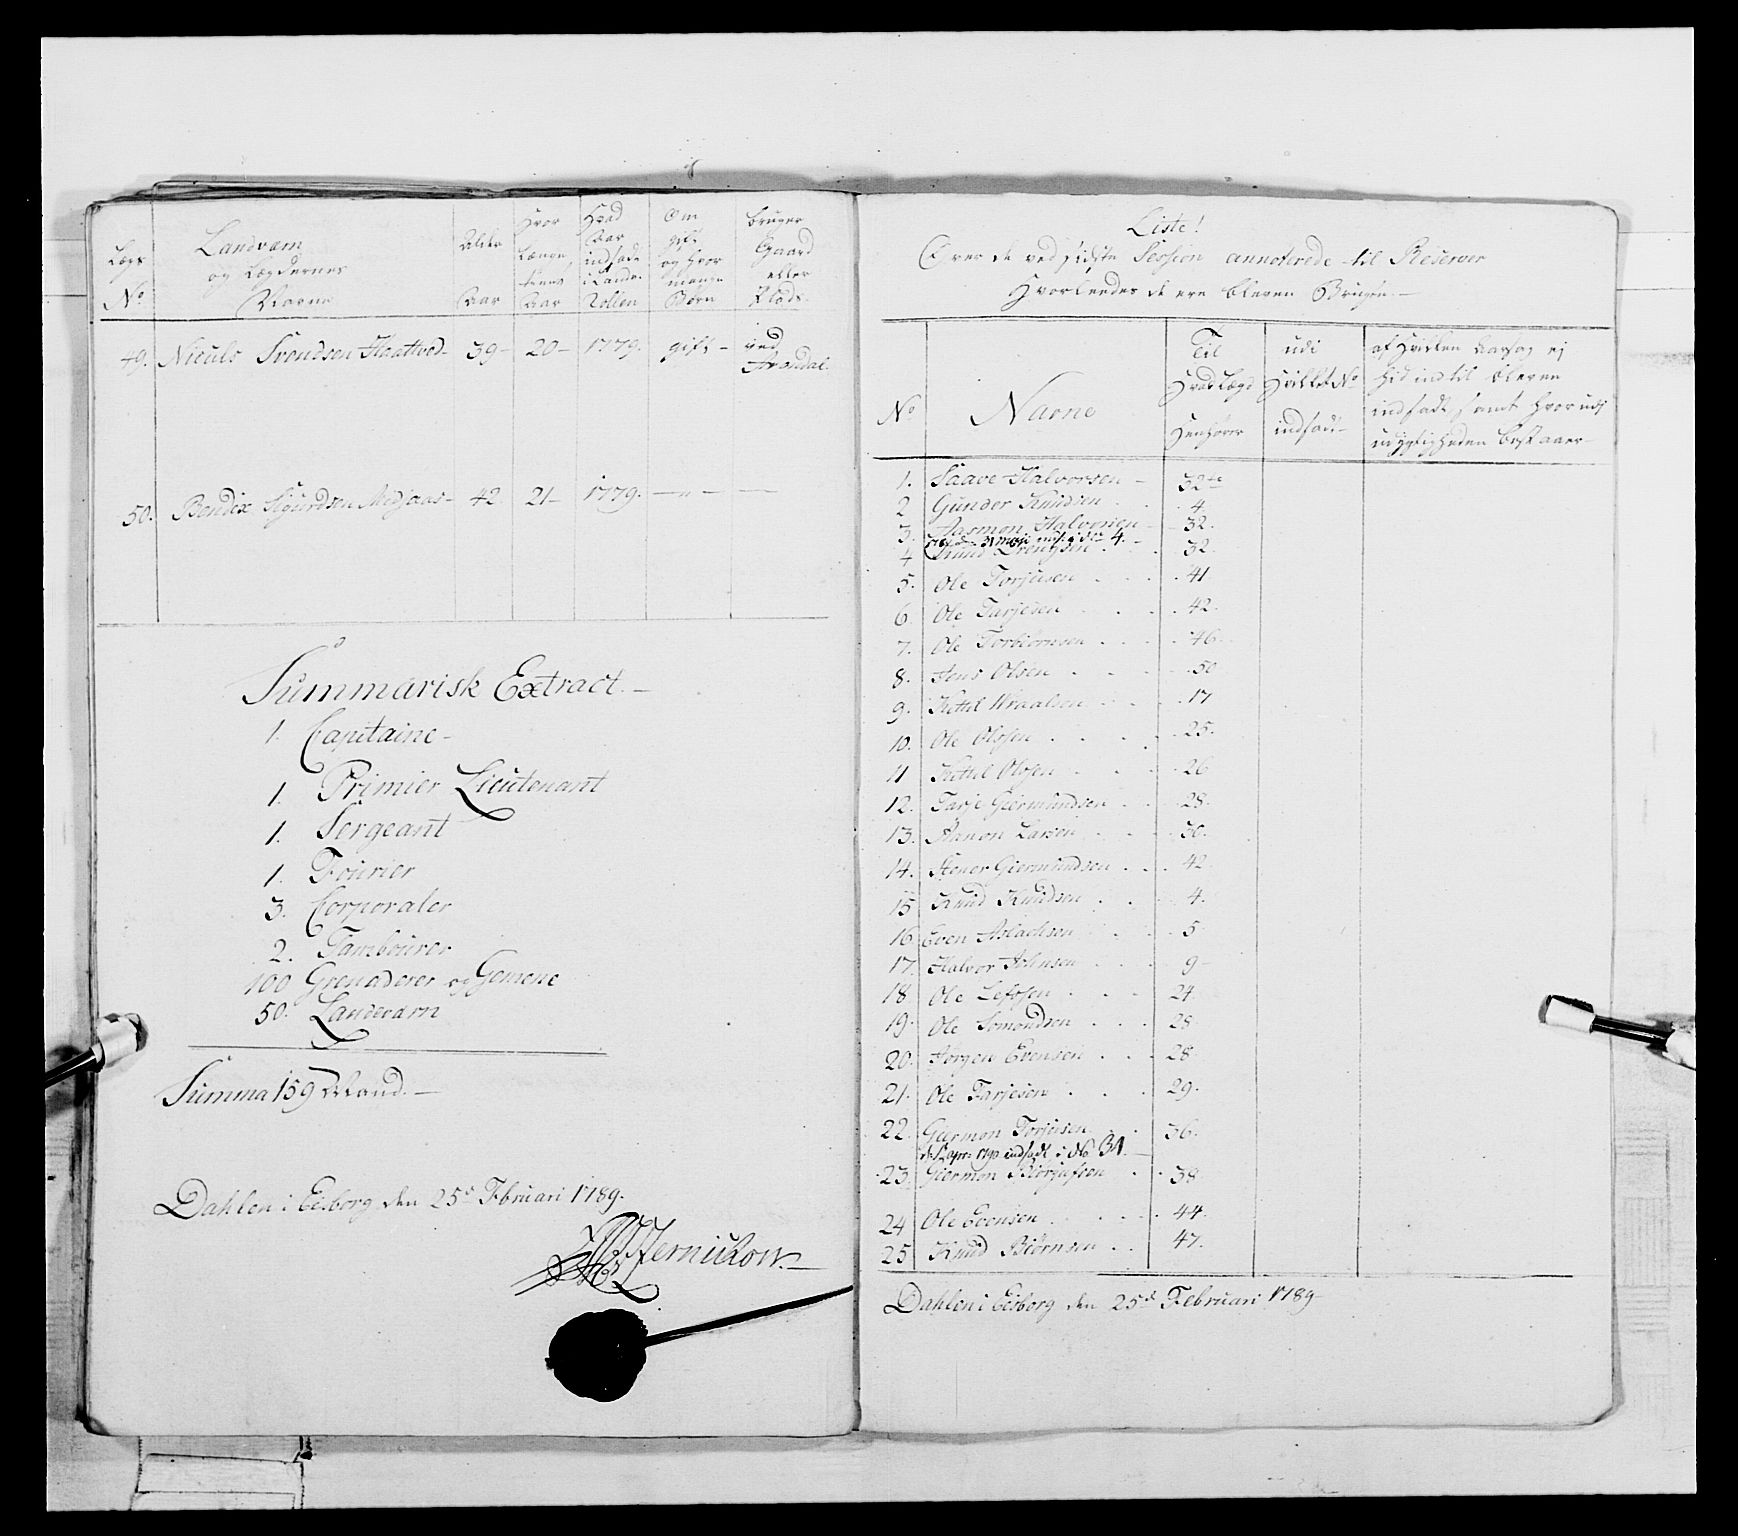 Lægs No
Landværn og Lægdernes Navne
Alder Aar
Hvor Længe tient Aar
Hvad Aar indsadt i Lande Rollen
Om gift og hvor mange Børn
bruger Gaard eller Plads.
49. Niculs Svendsen Haattvedt 39 – 20 – 1779. gift – ved Arendal.
50. Bendix Sigurdsen Midjaas – 42 21 – 1779. – " – –
Summarisk Extract. –
1. Capitaine –
1. Primier Lieutenant
1. Sergeant
1. Fourier
3. Corporaler
2. Tambourer
100 Grenaderer og Gemene
50. Landeværn
Summa 159 Mand. –
Dahlen i Eidsborg den 25de Februari 1789.
Liste!
Over de ved sidste Session annoterede til Reserver
Hvorleedes de ere bleven Brugte. –
No
Navne
Til Hvad Lægd Henhører
udi Hvilket No indsadt –
af Hvilken Aarsag ej hid indtil bleven indsadt, samt hvor udj udygtigheden bestaaer –
1. Saave Halvorsen – 32te
2 Gunder Knudsen 4.
3. Aasmon Halvorsen – 32.
4 Knud 32.
5. Ole Torjusen 41
6. Ole Tarjesen 42.
7. Ole Torbiörnsen 46.
8. Jens Olsen 50
9. Kittil Wraalsen 17
10. Ole Olsen 25.
11 Kittil Olsen 26
12. Tarje Giermundsen 28.
13. Aanon Larsen 30.
14. Stener Giermundsen 42
15 Knud Knudsen 4.
16 Even Aslachsen 5
17. Halvor Johnsen 9 –
18 Ole Lefsen 24.
19. Ole Somondsen 28
20. Jörgen Evensen 28
21. Ole Tarjesen 29.
22. Garmon Torjusen 36.
1790 indsadt i No 31.
23. Giermon 38
24 Ole Evensen 44.
25 Knud Biörnsen 47.
Dahlen i Eidsborg den 25de Februari 1789 –